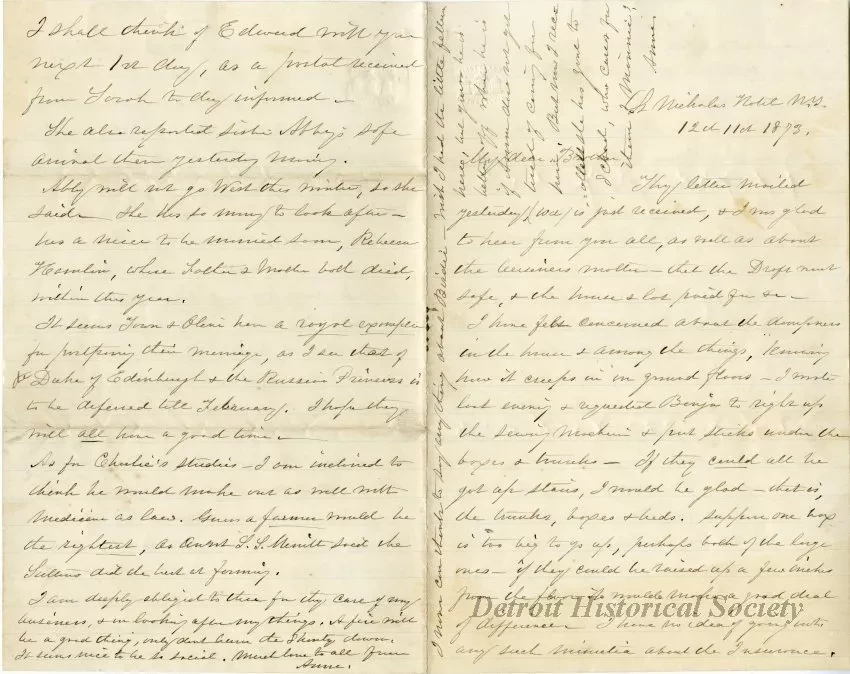 St Nicholas Hotel N.Y.
12th 11th 1873.
My dear Brother
Thy letter mailed
yesterday is just received, & I was glad
to hear from you all, as well as about
the business matter - that the Draft went
safe, & the house & lot paid for &c -
I have felt concerned about the dampness
in the house & among the things, knowing
how it creeps in on ground floors - I wrote
last evening & requested Benja to right up
the Sewing Machine & put sticks under the
boxes & trunks - If they could all be
got up stairs, I would be glad - that is,
the trunks, boxes & beds. Suppose one box
is too big to go up, perhaps both of the large
ones - if they could be raised up a few inches
from the floor, it would make a good deal
of difference - I have no idea of going into
any such minutia about the Insurance.
I shall think of Edward with you
next 1st day, as a postal received
from Sarah to day informed -
She also reported Sister Abby's safe
arrival there yesterday morning.
Abby will not go West this winter, so she
said - She has so many to look after -
has a niece to be married soon, Rebecca
Hamlin, whose Father & Mother both died,
within this year.
It seems Tom & Olive have a royal example
for postponing their marriage, as I see that of
the Duke of Edinburgh & the Russian Princess is
to be deferred till February. I hope they
will all have a good time -
As for Charlie's studies - I am inclined to
think he would make out as well with
Medicine as law. Guess a farmer would be
the rightest, as Aunt L. S. Merritt said the
Suttons did the best at farming.
I am deeply obliged to thee for thy care of my
business, & in looking after my things. A fire will
be a good thing, only don't burn the Shanty down.
It seems nice to be so social. Much love to all from
Anne.
I wish I had the little fellow
here, but guess he is
better off where he is
if Mama does not get
tired of caring for
has gone to
who cares for
them & Minnie?
Anne.
Detroit Historical Society